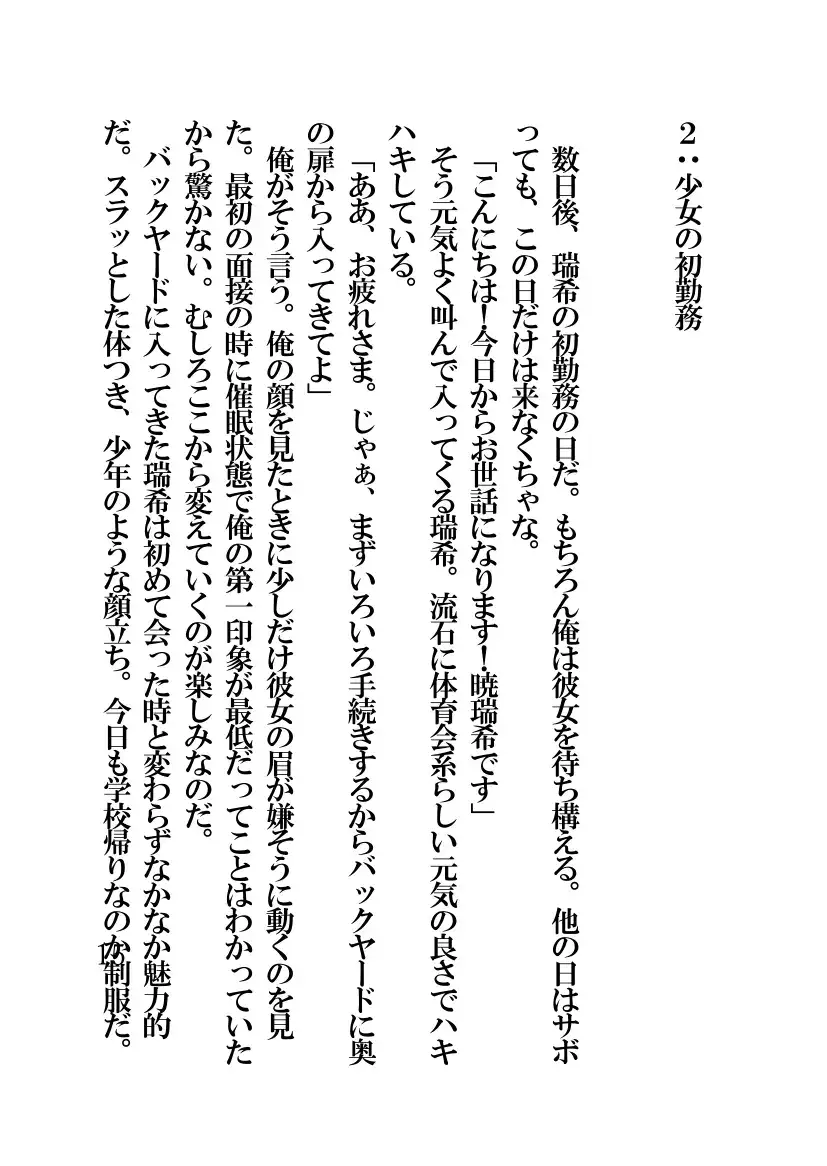 ２：少女の初勤務
数日後、瑞希の初勤務の日だ。もちろん俺は彼女を待ち構える。他の日はサボ
っても、この日だけは来なくちゃな。
「こんにちは！今日からお世話になります！暁瑞希です」
そう元気よく叫んで入ってくる瑞希。流石に体育会系らしい元気の良さでハキ
ハキしている。
「ああ、お疲れさま。じゃぁ、まずいろいろ手続きするからバックヤードに奥
の扉から入ってきてよ」
俺がそう言う。俺の顔を見たときに少しだけ彼女の眉が嫌そうに動くのを見
た。最初の面接の時に催眠状態で俺の第一印象が最低だってことはわかっていた
から驚かない。むしろここから変えていくのが楽しみなのだ。
バックヤードに入ってきた瑞希は初めて会った時と変わらずなかなか魅力的
だ。スラッとした体つき、少年のような顔立ち。今日も学校帰りなのか制服だ。